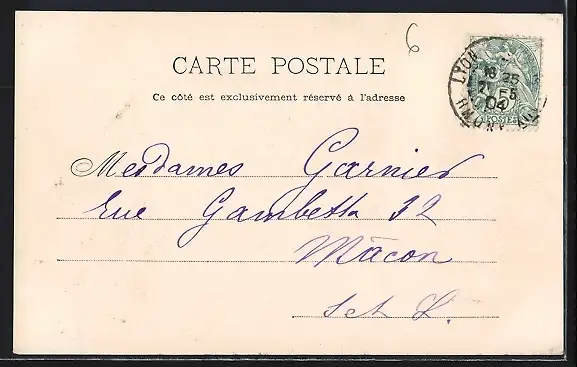 6
CARTE POSTALE
Ce côté est exclusivement réservé à l'adresse
LYON
RHONE
18 25
04
POSTES
Mesdames Garnier
Rue Gambetta 32
Mâcon
S et L.